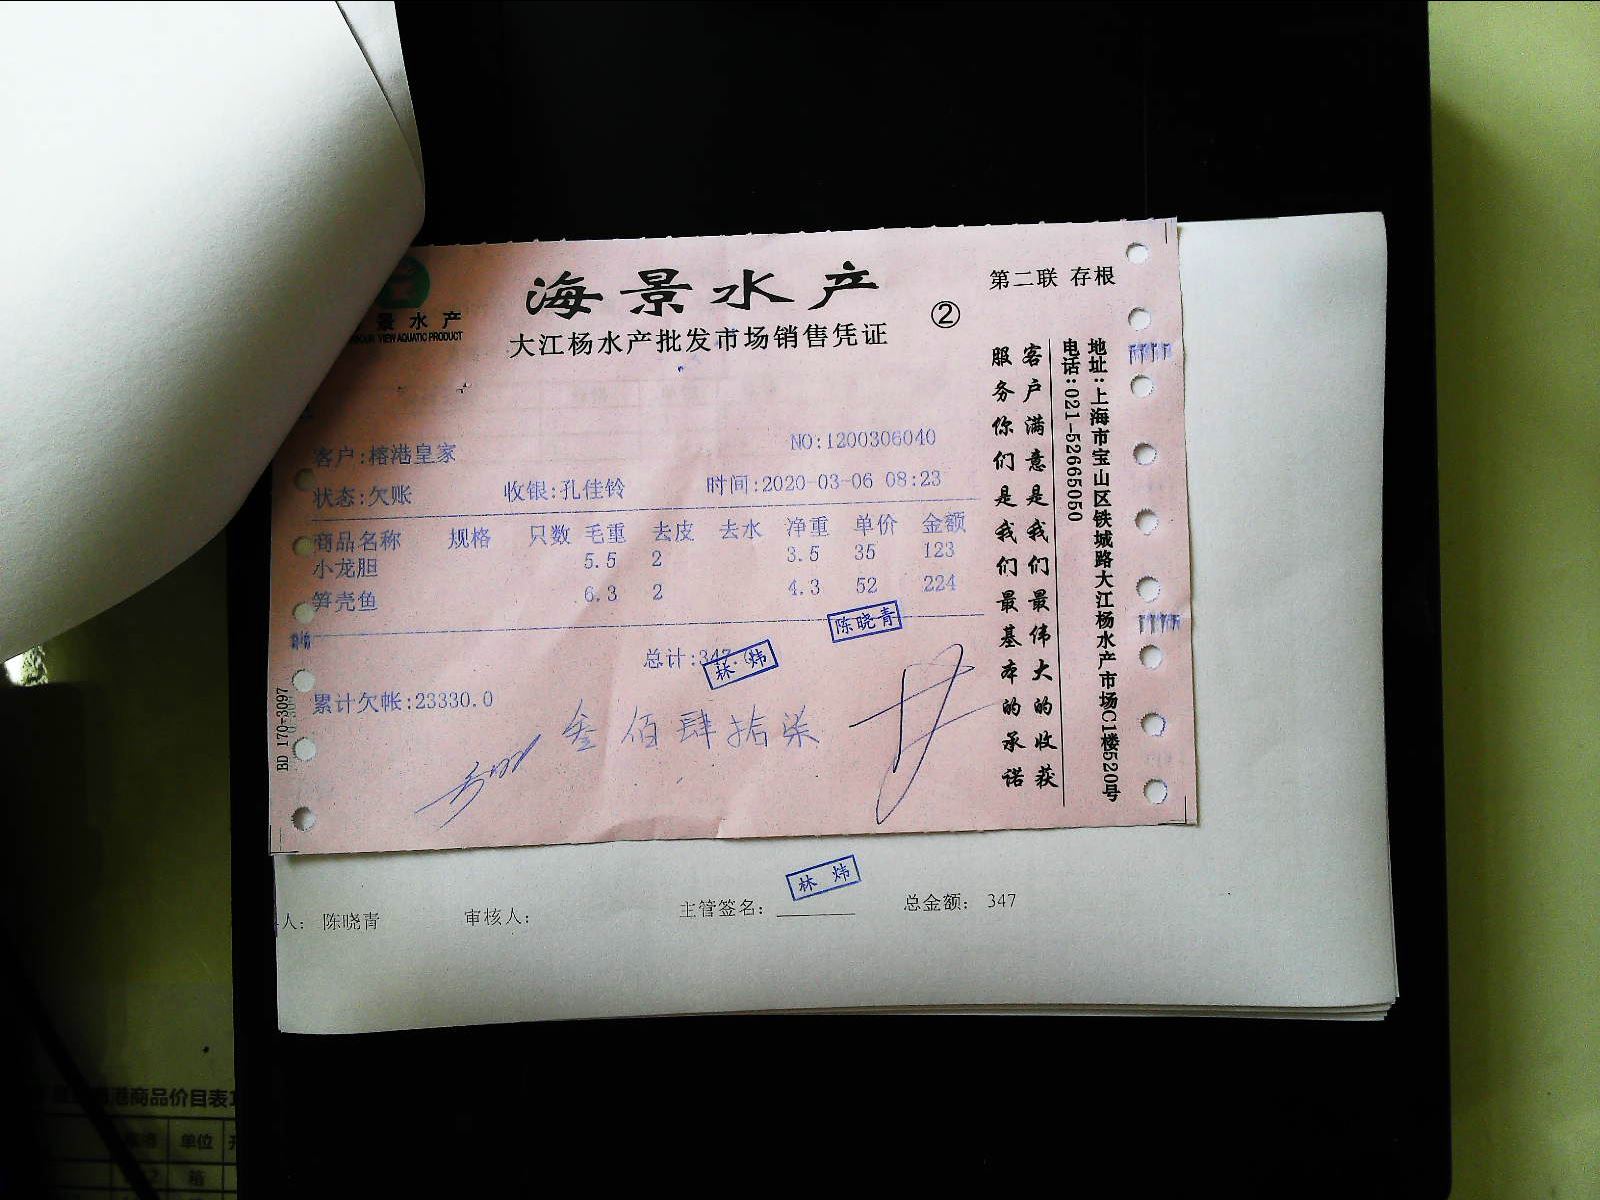 海景水产
大江杨水产批发市场销售凭证
②
第二联 存根
景水产
VIEW AQUATIC PRODUCT
客户:榕港皇家
NO:1200306040
状态:欠账 收银:孔佳铃 时间:2020-03-06 08:23
商品名称 规格 只数 毛重 去皮 去水 净重 单价 金额
小龙胆 5.5 2 3.5 35 123
笋壳鱼 6.3 2 4.3 52 224
陈晓青
总计:347.0
林炜
累计欠帐:23330.0
叁佰肆拾柒
BD 170-3097
客户满意是我们最伟大的收获
服务你们是我们最基本的承诺
地址:上海市宝山区铁城路大江杨水产市场C1楼520号
电话:021-52665050
林炜
人: 陈晓青 审核人: 主管签名: 总金额: 347
港商品价目表
单位
箱